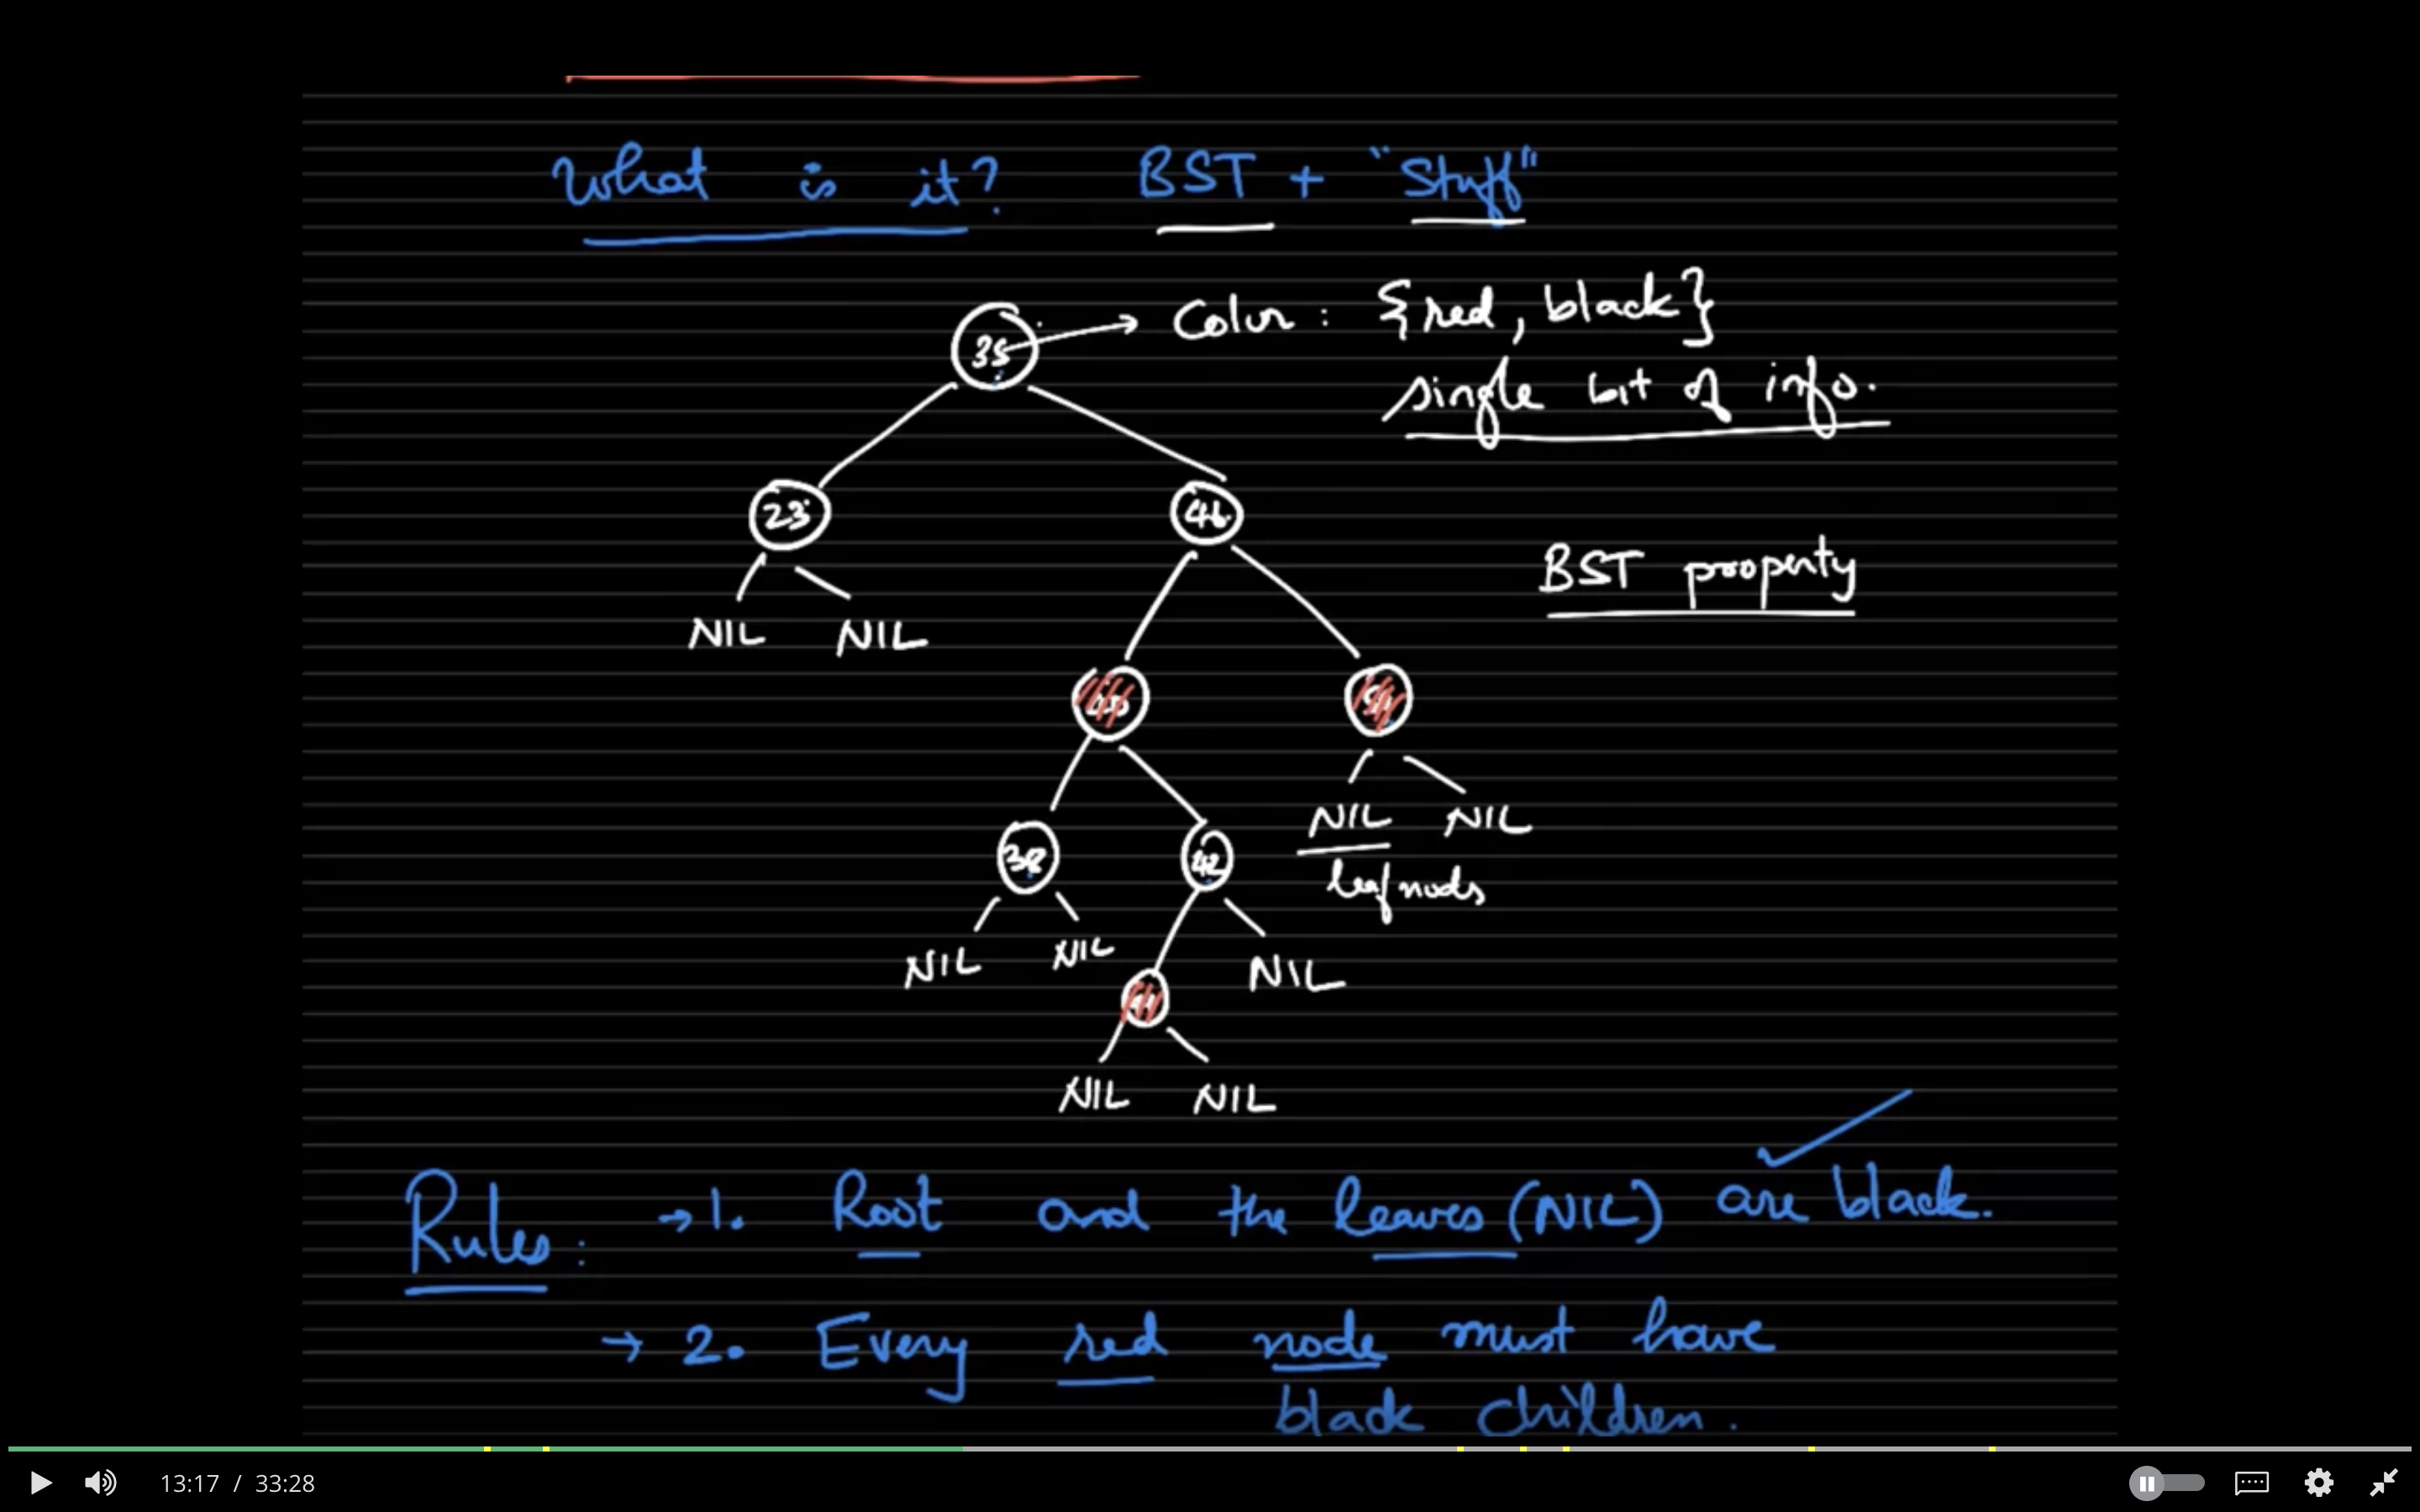 What is it? BST + "Stuff"
35 → Color : {red, black}
single bit of info.
23 46
BST property
NIL NIL
40
NIL NIL
38 42
leaf nods
NIL NIL NIL
41
NIL NIL
Rules : → 1. Root and the leaves (NIL) are black.
→ 2. Every red node must have
black children.
13:17 / 33:28